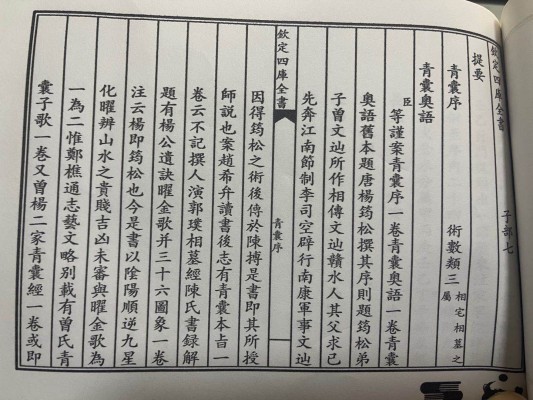 欽定四庫全書 子部七
提要
青囊序 術數類三 相宅相墓之屬
青囊奧語
臣等謹案青囊序一卷青囊奧語一卷青囊
奧語舊本題唐楊筠松撰其序則題筠松弟
子曾文辿所作相傳文辿贛水人其父求己
先奔江南節制李司空辟行南康軍事文辿
欽定四庫全書 青囊序
因得筠松之術後傳於陳摶是書即其所授
師說也案趙希弁讀書後志有青囊本旨一
卷云不記撰人演郭璞相墓經陳氏書錄解
題有楊公遺訣曜金歌并三十六圖象一卷
注云楊即筠松也今是書以陰陽順逆九星
化曜辨山水之貴賤吉凶未審與曜金歌為
一為二惟鄭樵通志藝文略別載有曾氏青
囊子歌一卷又曾楊二家青囊經一卷或即